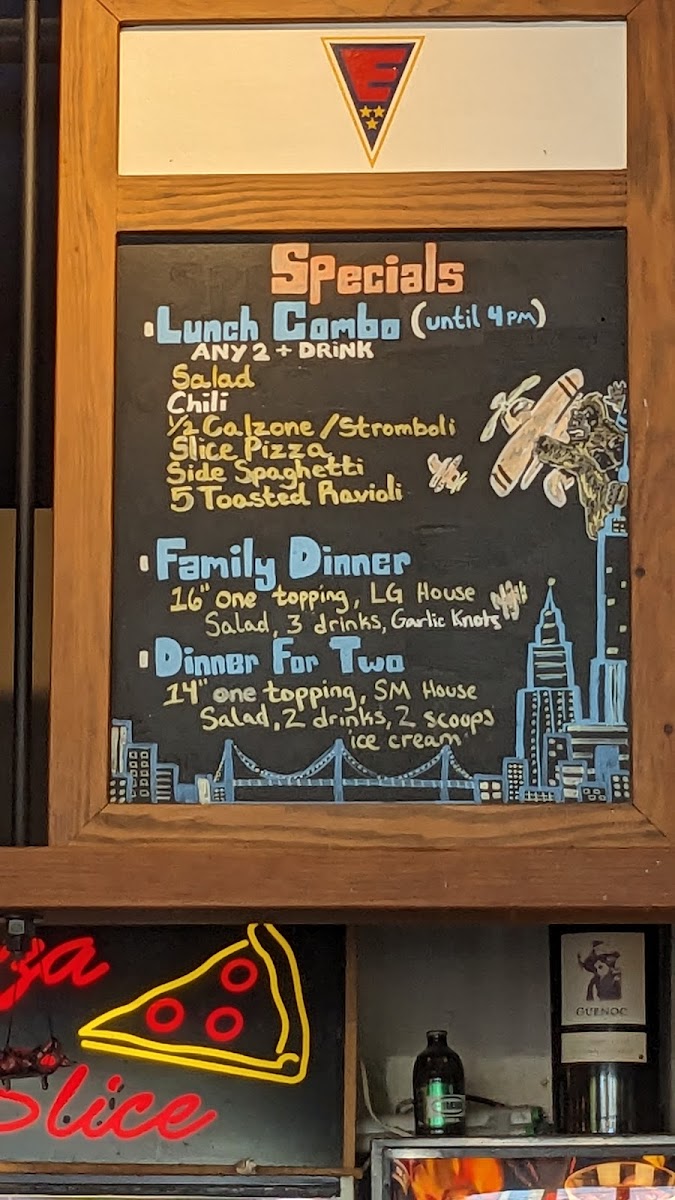 E
Specials
Lunch Combo (until 4pm)
ANY 2 + DRiNK
Salad
Chili
1/2 Calzone/Stromboli
Slice Pizza
Side Spaghetti
5 Toasted Ravioli
Family Dinner
16" one topping, LG House
Salad, 3 drinks, Garlic Knots
Dinner For Two
14" one topping, SM House
Salad, 2 drinks, 2 scoops
ice cream
zza
Slice
GUENOC